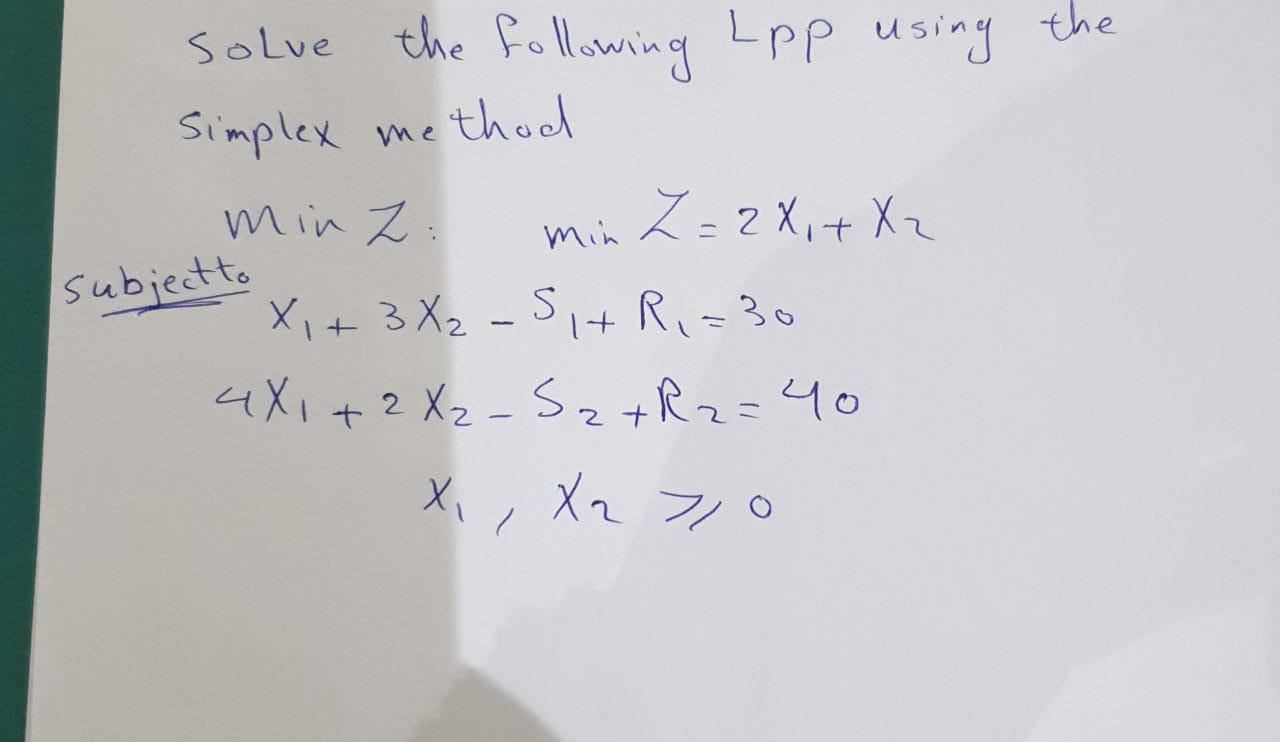 Solve the following Lpp using the
Simplex method
Min Z: min Z = 2X₁ + X₂
Subject to
X₁ + 3X₂ - S₁ + R₁ = 30
4X₁ + 2X₂ - S₂ + R₂ = 40
X₁, X₂ ⩾ 0